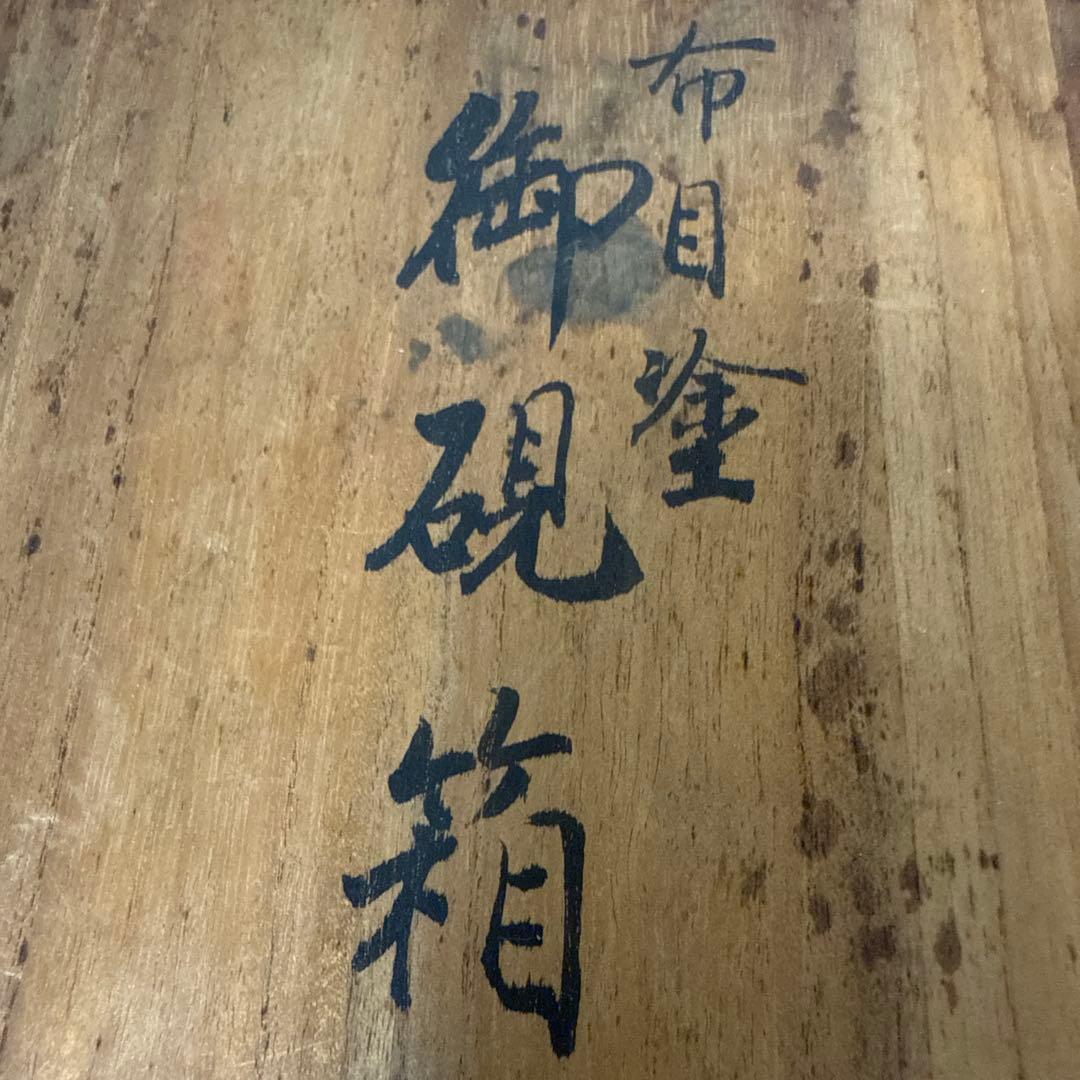 布目塗
御硯箱